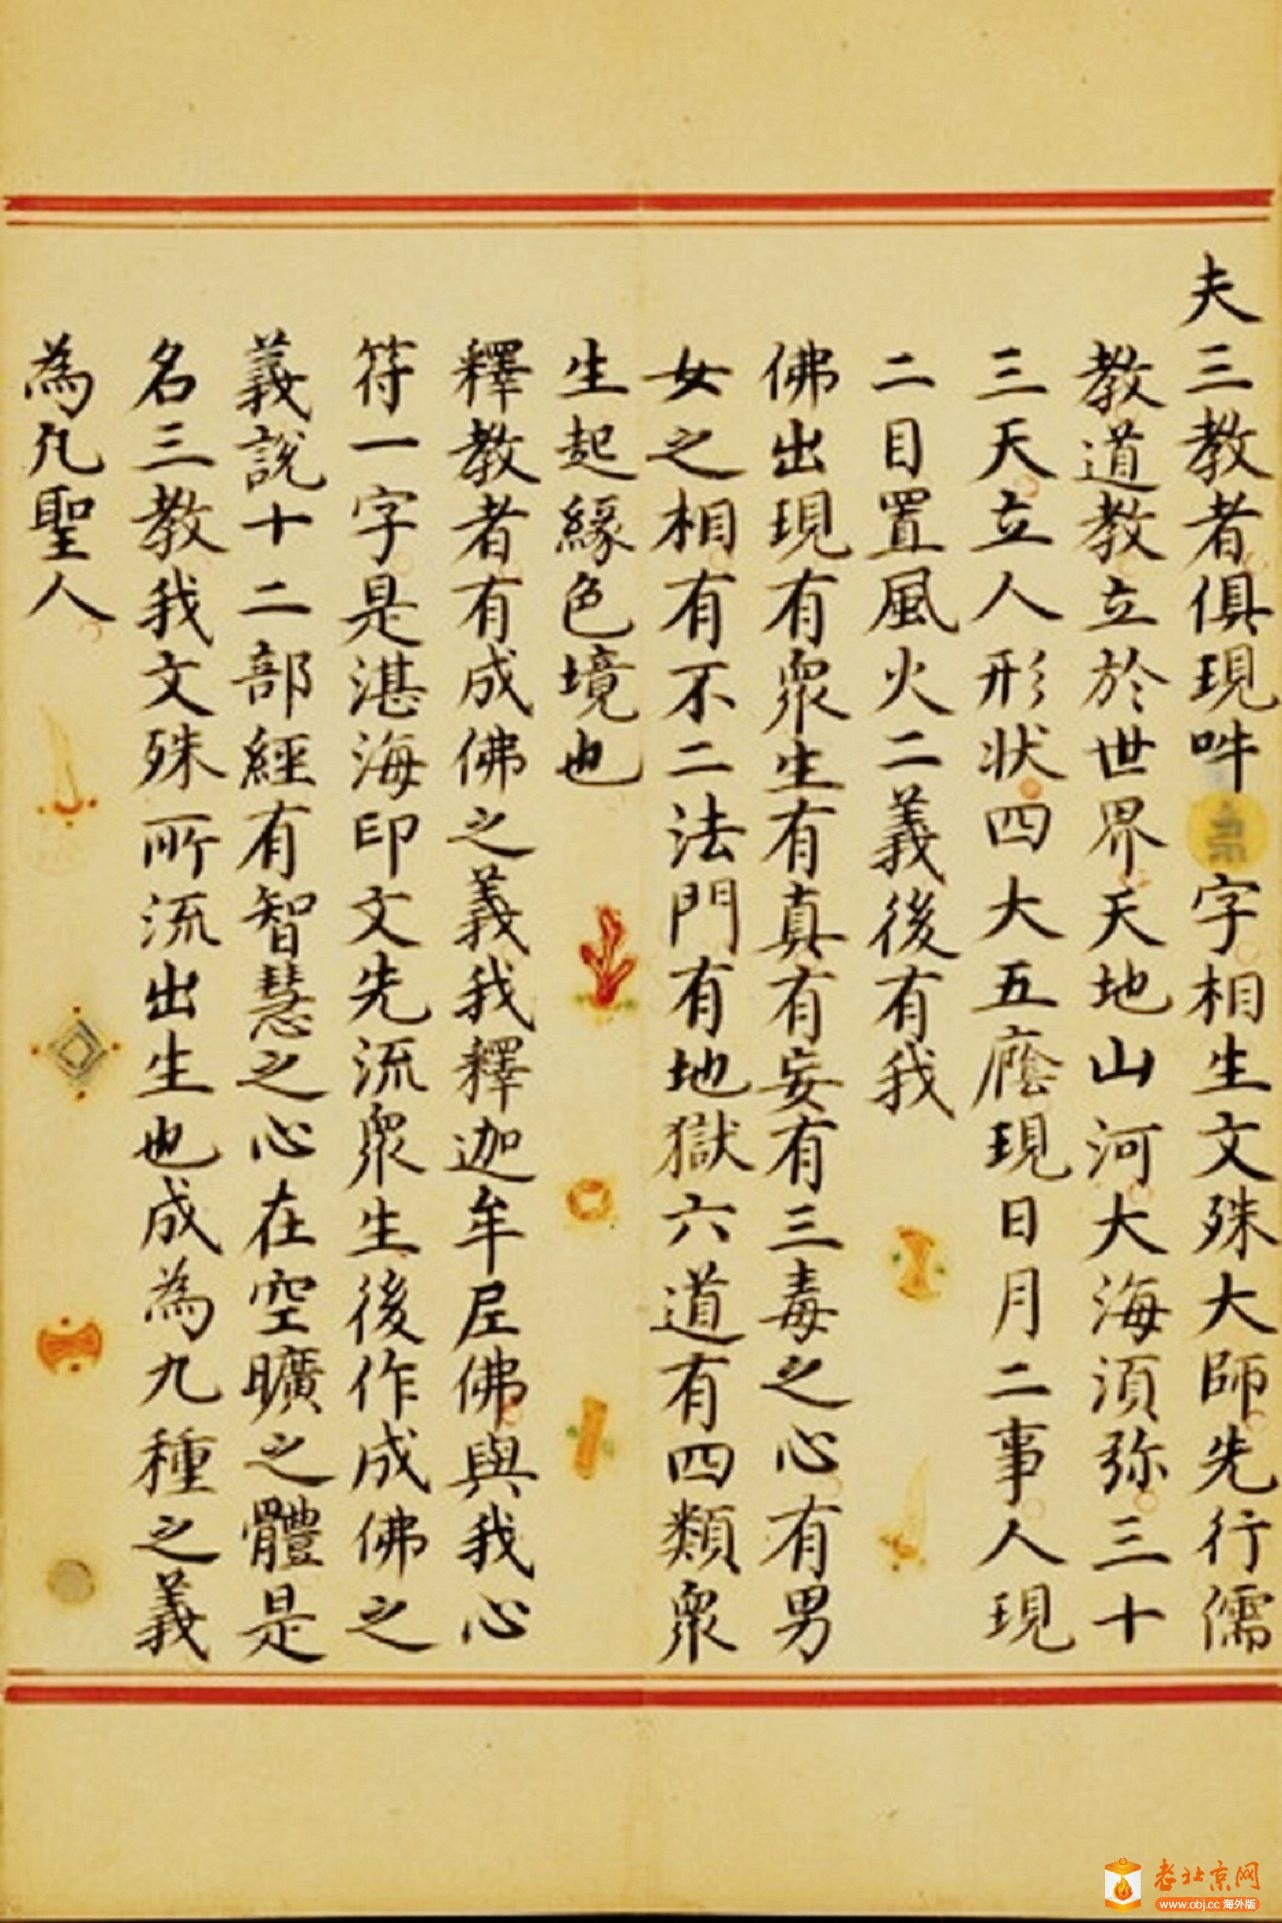 夫三教者俱現吽字相生文殊大師先行儒
教道教立於世界天地山河大海須弥三十
三天立人形状四大五廕現日月二事人現
二目置風火二義後有我
佛出現有衆生有真有妄有三毒之心有男
女之相有不二法門有地獄六道有四類衆
生起緣色境也
釋教者有成佛之義我釋迦牟尼佛與我心
符一字是湛海印文先流衆生後作成佛之
義說十二部經有智慧之心在空曠之體是
名三教我文殊所流出生也成為九種之義
為凡聖人
老北京网
www.obj.cc 海外版